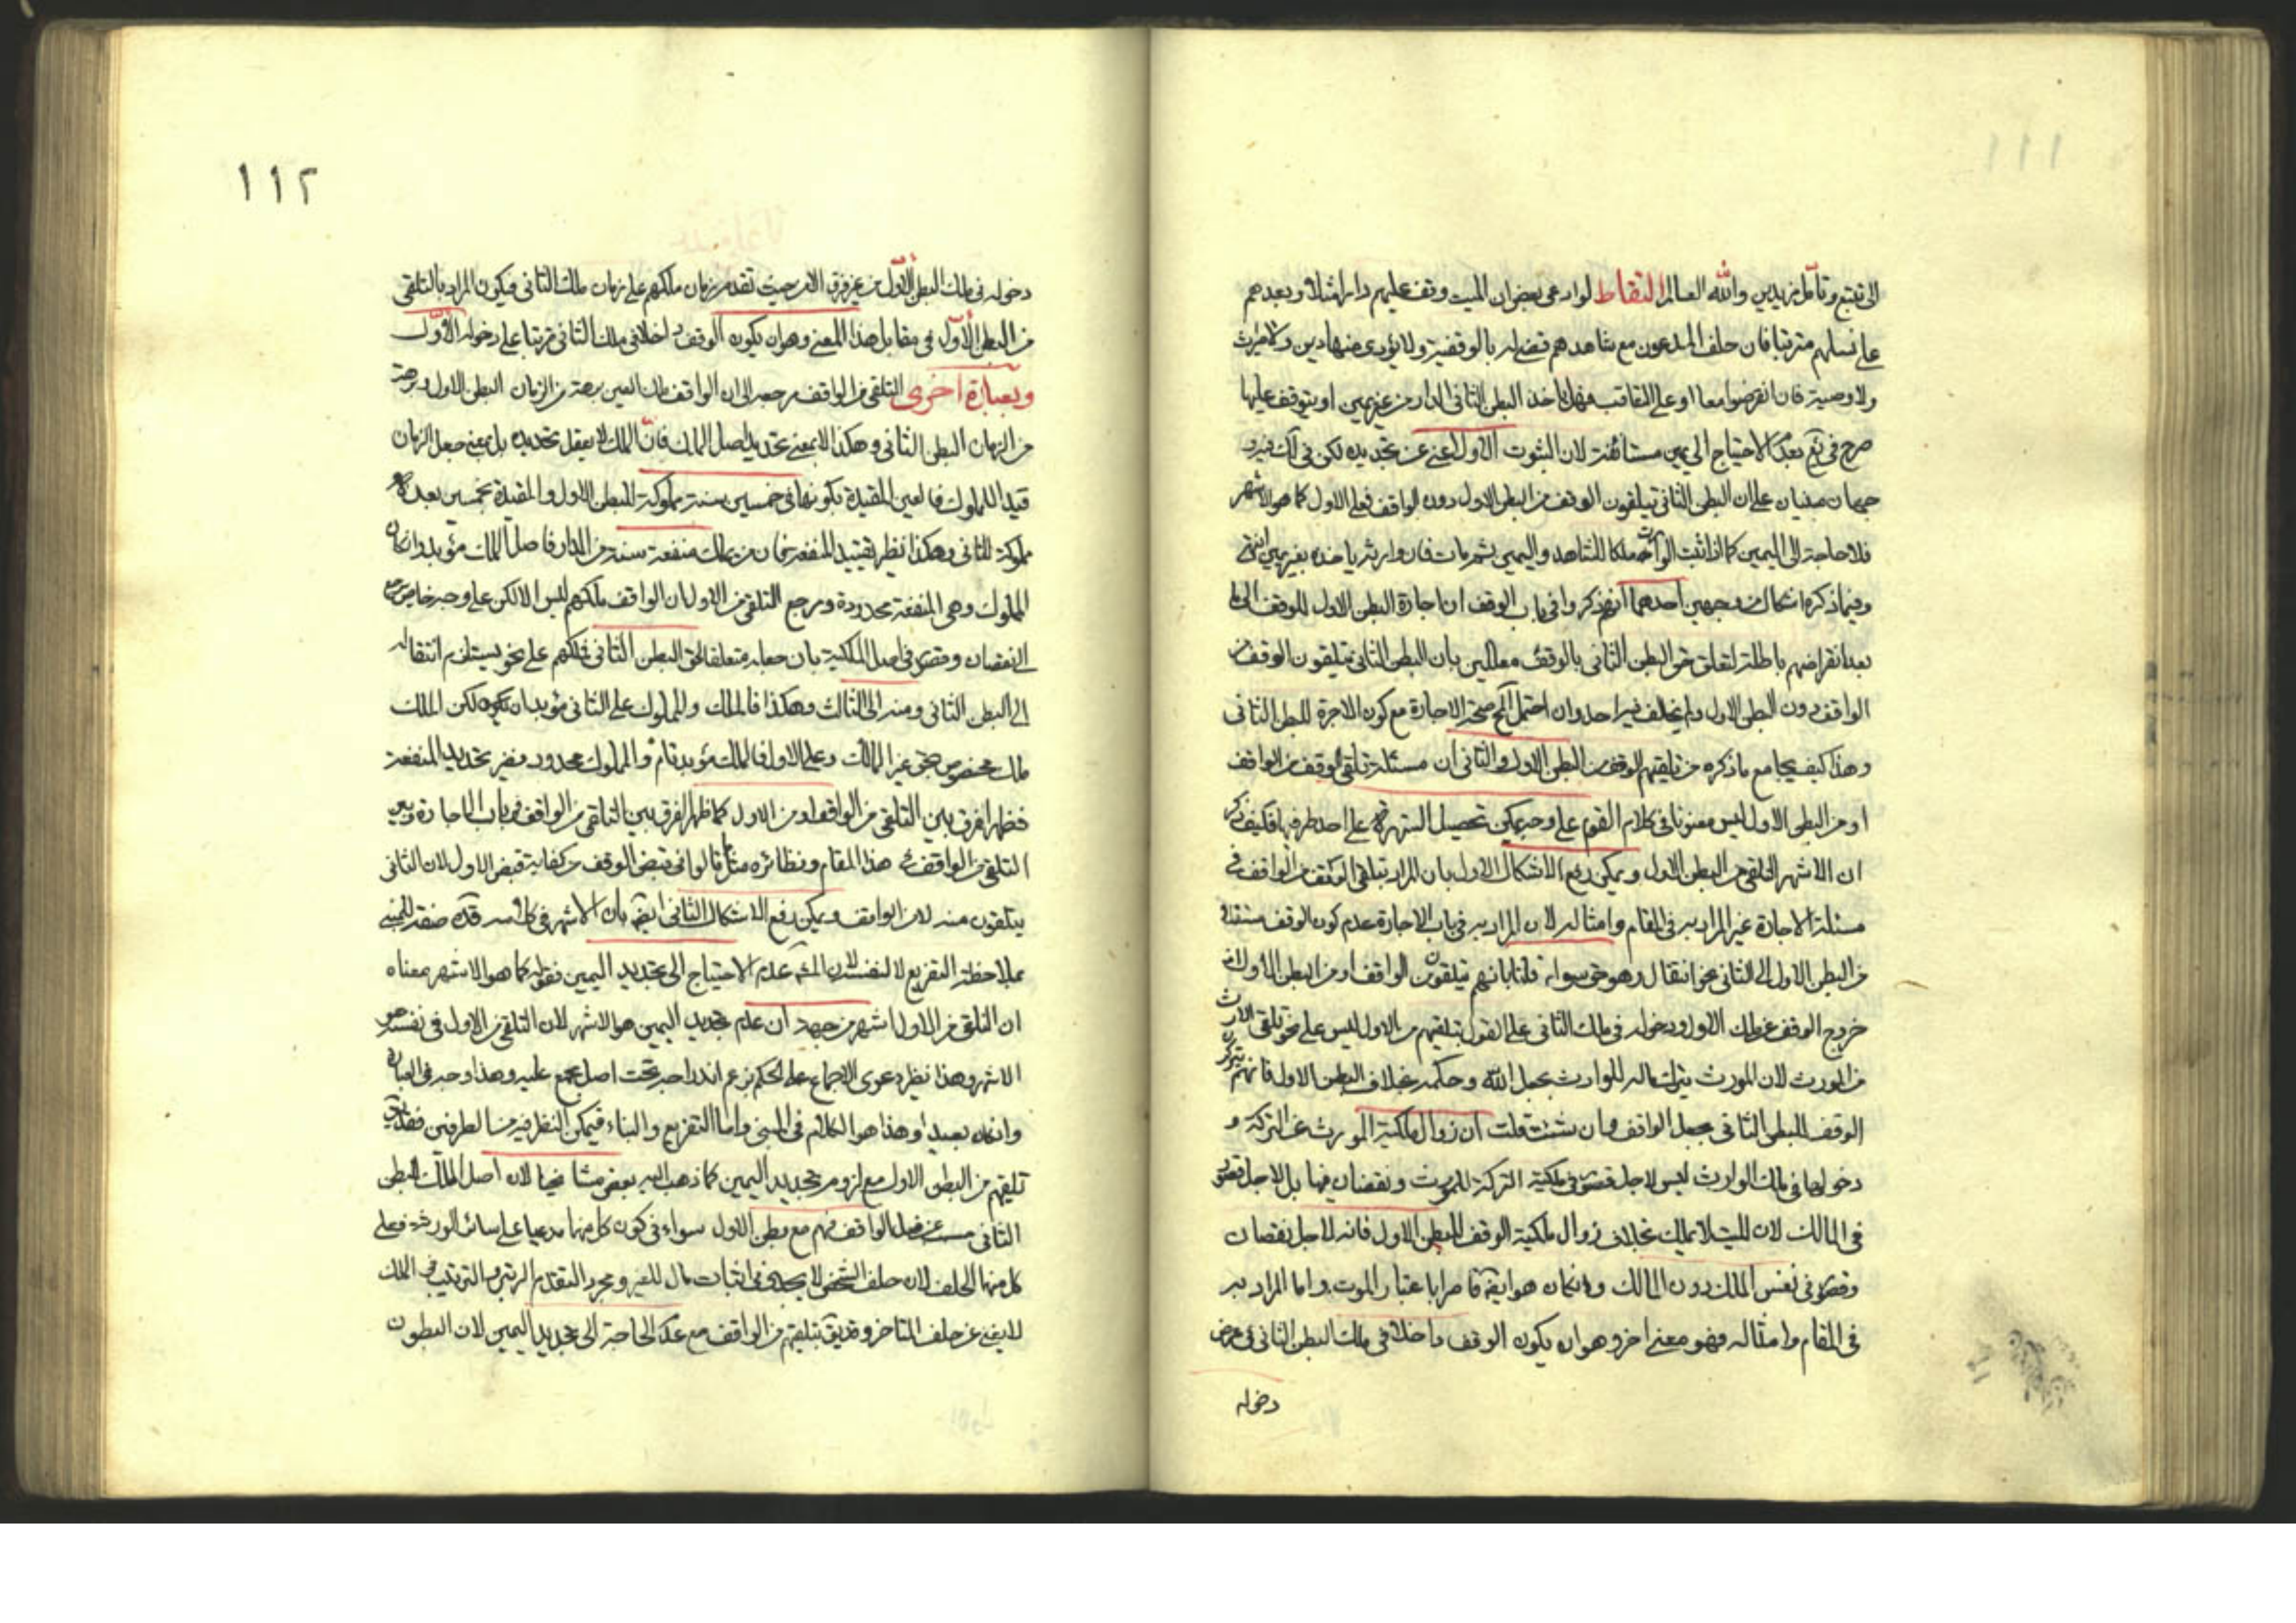 ١١١
الى تتبع وتأمل زيد من والله العالم التقاط لو ادعى بعض ان الميت وقف عليهم دارا مثلا وبعدهم
على نسلهم مترتبا فان حلف المدعون مع شاهدهم قضى لهم بالوقفية ولا يؤدى منها دين ولا ميراث
ولا وصية فان انقرضوا معا او على التعاقب فهل ياخذ البطن الثانى الدار من غير يمين او يتوقف عليها
صرح فى يع بعدم الاحتياج الى يمين مستأنفة لان الثبوت الاول اغنى عن تجديده لكن فى لك فيه
مبنيان على ان البطن الثانى يتلقون الوقف من البطن الاول دون الواقف فعلى الاول كما هو الاشهر
فلا حاجة الى اليمين كما اذا اثبت الوارث ملكا للشاهد واليمين ثم مات فان وارثه ياخذه بغير يمين انتهى
وفيما ذكره اشكال من وجهين احدهما انهم ذكروا فى باب الوقف ان اجارة البطن الاول للوقف الى ما
بعد انقراضهم باطلة لتعلق حق البطن الثانى بالوقف معللين بان البطن الثانى يتلقون الوقف من
الواقف دون البطن الاول ولم يخالف فيه احد وان احتمل صحة الاجارة مع كون الاجرة للبطن الثانى
وهذا كيف يجامع ما ذكره من تلقيهم الوقف من البطن الاول والثانى ان مسئلة تلقى الوقف من الواقف
او من البطن الاول ليس معنونا فى كلام القوم على وجه يمكن تحصيل الشهرة على احد طرفيها فكيف ذكر
ان الاشهر التلقى من البطن الاول ويمكن دفع الاشكال الاول بان المراد بتلقى الوقف من الواقف فى
مسئلة الاجارة غير المراد به فى المقام وامثاله لان المراد به فى باب الاجارة عدم كون الوقف منتقلا
من البطن الاول الى الثانى نحو انتقال وهو حق سواء قلنا بانهم يتلقون من الواقف او من البطن الاول لان
خروج الوقف عن ملك الاول ودخوله فى ملك الثانى على القول بتلقيهم من الاول ليس على نحو تلقى الارث
من المورث لان المورث يترك ماله للوارث بجعل الله وحكمه بخلاف البطن الاول فانهم يتركون
الوقف للبطن الثانى بجعل الواقف وان شئت قلت ان زوال ملكية المورث عن التركة و
دخولها فى ملك الوارث ليس لاجل قصور فى ملكية التركة للمورث ونقصان فيها بل لاجل قصور
فى المالك لان الميت لا يملك بخلاف زوال ملكية الوقف للبطن الاول فانه لاجل نقصان
وقصور فى نفس الملك دون المالك وان كان هو ايضا قاصرا باعتبار الموت واما المراد به
فى المقام وامثاله فهو معنى اخر وهو ان يكون الوقف داخلا فى ملك البطن الثانى فى عرض
دخوله
١١٢
دخوله فى ملك البطن الاول من غير فرق الا من حيث تقدم زمان ملكهم على زمان ملك الثانى فيكون المراد بالتلقى
من البطن الاول فى مقابل هذا المعنى وهو ان يكون الوقف داخلا فى ملك الثانى مترتبا على دخوله الاول
وبعبارة اخرى التلقى من الواقف مرجعه الى ان الواقف ملك العين برهة من الزمان البطن الاول وبرهة
من الزمان البطن الثانى وهكذا لا بمعنى تحديد اصل الملك فان الملك لا يعقل تحديده بل بمعنى جعل الزمان
قيدا للمملوك فالعين المقيدة بكونها فى خمسين سنة مملوكة للبطن الاول والمقيدة بخمسين بعده
مملوكة للثانى وهكذا نظير تقييد المنفعة فان من يملك منفعة سنة من الدار فاصل الملك مؤبد وان كان
المملوك وهى المنفعة محدودة ومرجع التلقى من الاول ان الواقف ملكهم ليس الا لكن على وجه خاص
النقصان وقصور فى اصل الملكية بان جعله متعلقا لحق البطن الثانى فملكهم على نحو يستلزم انتقاله
الى البطن الثانى ومنه الى الثالث وهكذا فالملك والمملوك على الثانى مؤبدان لكن الملك
ملك مخصوص حتى غير المالك وعلى الاول فالملك مؤبد تام والمملوك محدود وغير تحديد المنفعة
فظهر الفرق بين التلقى من الواقف او من الاول كما ظهر الفرق بين التلقى من الواقف فى باب الاجارة وبين
التلقى من الواقف فى هذا المقام ونظائره مثل ما قالوا فى قبض الوقف من كفاية قبض الاول لان الثانى
يتلقون منه لا من الواقف ويمكن دفع الاشكال الثانى ايضا بان الاشهر فى كلامه قده صفة للمبنى
بملاحظة التفريع لا لنفسه لان عدم الاحتياج الى تجديد اليمين فقوله كما هو الاشهر معناه
ان التلقى من الاول اشهر من جهة ان عدم تجديد اليمين هو الاشهر لان التلقى من الاول فى نفسه هو
الاشهر وهذا نظير دعوى الاجماع على الحكم بزعم اندراجه تحت اصل مجمع عليه وهذا وجه فى العبارة
وان كان بعيدا وهذا هو الكلام فى المبنى واما التفريع والبناء فيمكن النظر فيه من الطرفين فقد يق
تلقيهم من البطن الاول مع لزوم تجديد اليمين كما ذهب اليه بعض مشايخنا لان اصل الملك للبطن
الثانى الواقف فهم مع بطن الاول سواء فى كون كل منهما مدعيا على سائر الورثة فعلى
كل منهما الحلف لان حلف الشخص لا يجدى فى اثبات مال للغير ومجرد التقدم الرتبى والترتيب فى الملك
لا يغنى عن حلف المتاخر وقد يق بتلقيهم من الواقف مع عدم الحاجة الى تجديد اليمين لان البطون